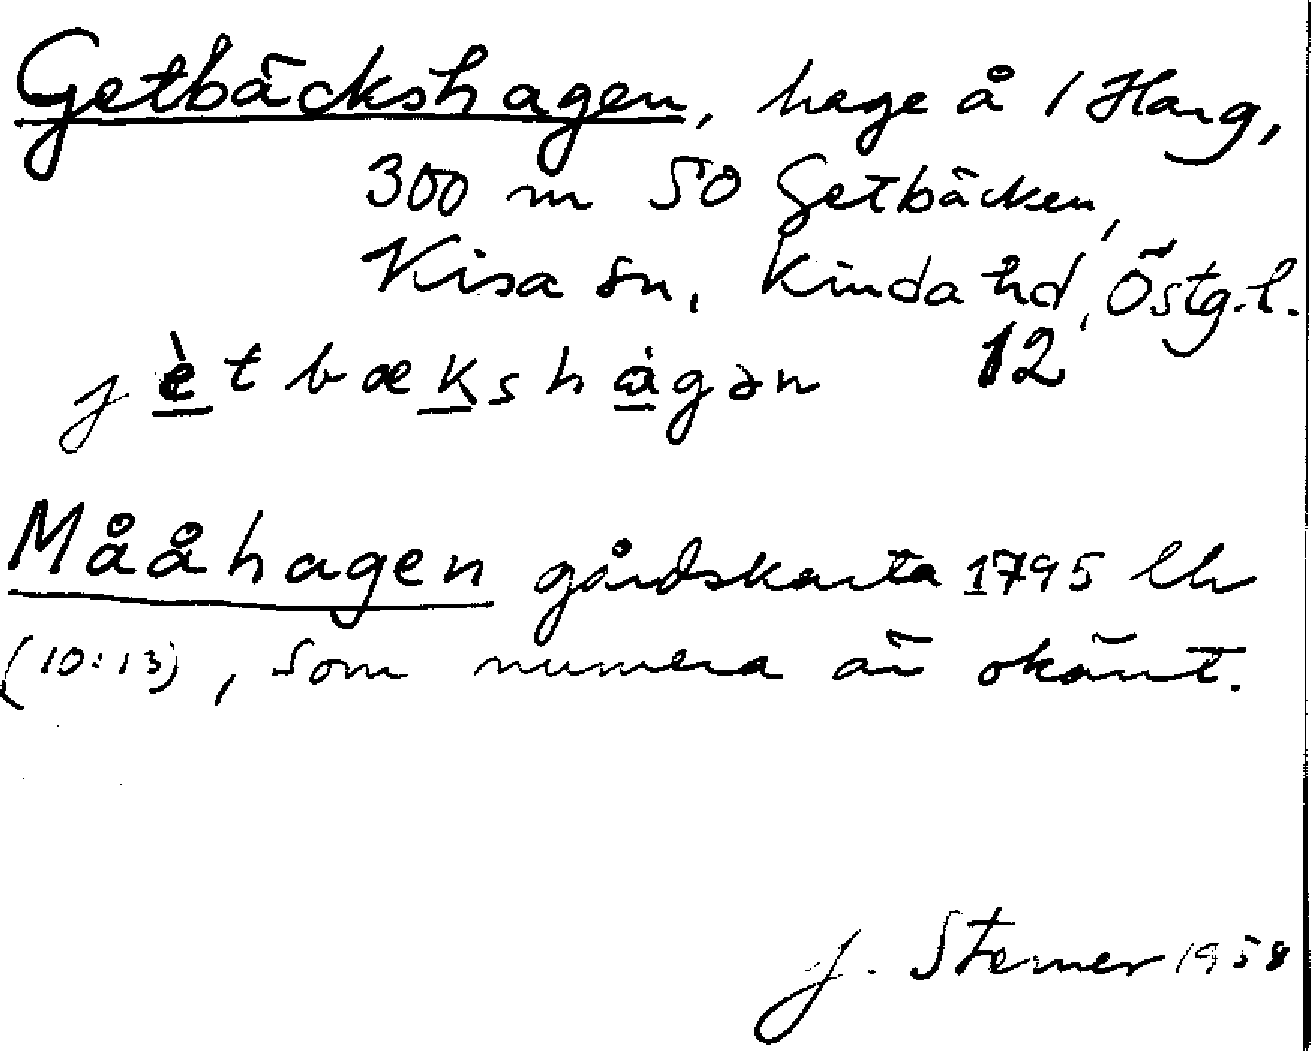 Getbäckshagen, hage å 1 Harg,
300 m SO Getbäcken,
Kisa sn, Kinda hd, Östg.l.
j è t b æ k s h à g ə n 12
Mååhagen gårdskarta 1795
(10:13), som numera är okänt.
J. Sterner 1958